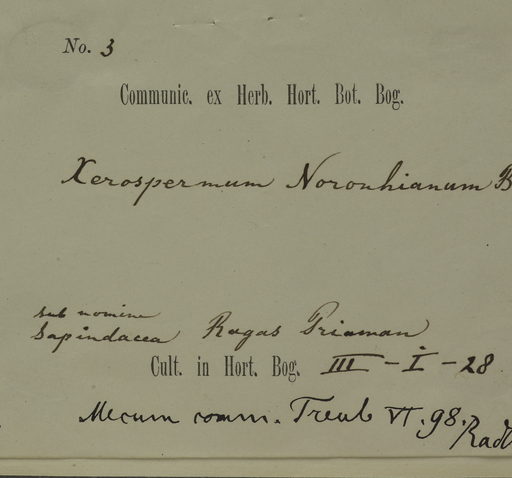 No. 3
Communic. ex Herb. Hort. Bot. Bog.
Xerospermum Noronhianum B
sub nomine
Sapindacea Ragas Priaman
Cult. in Hort. Bog. III - I - 28
Mecum comm. Treub VI. 98.
Radl